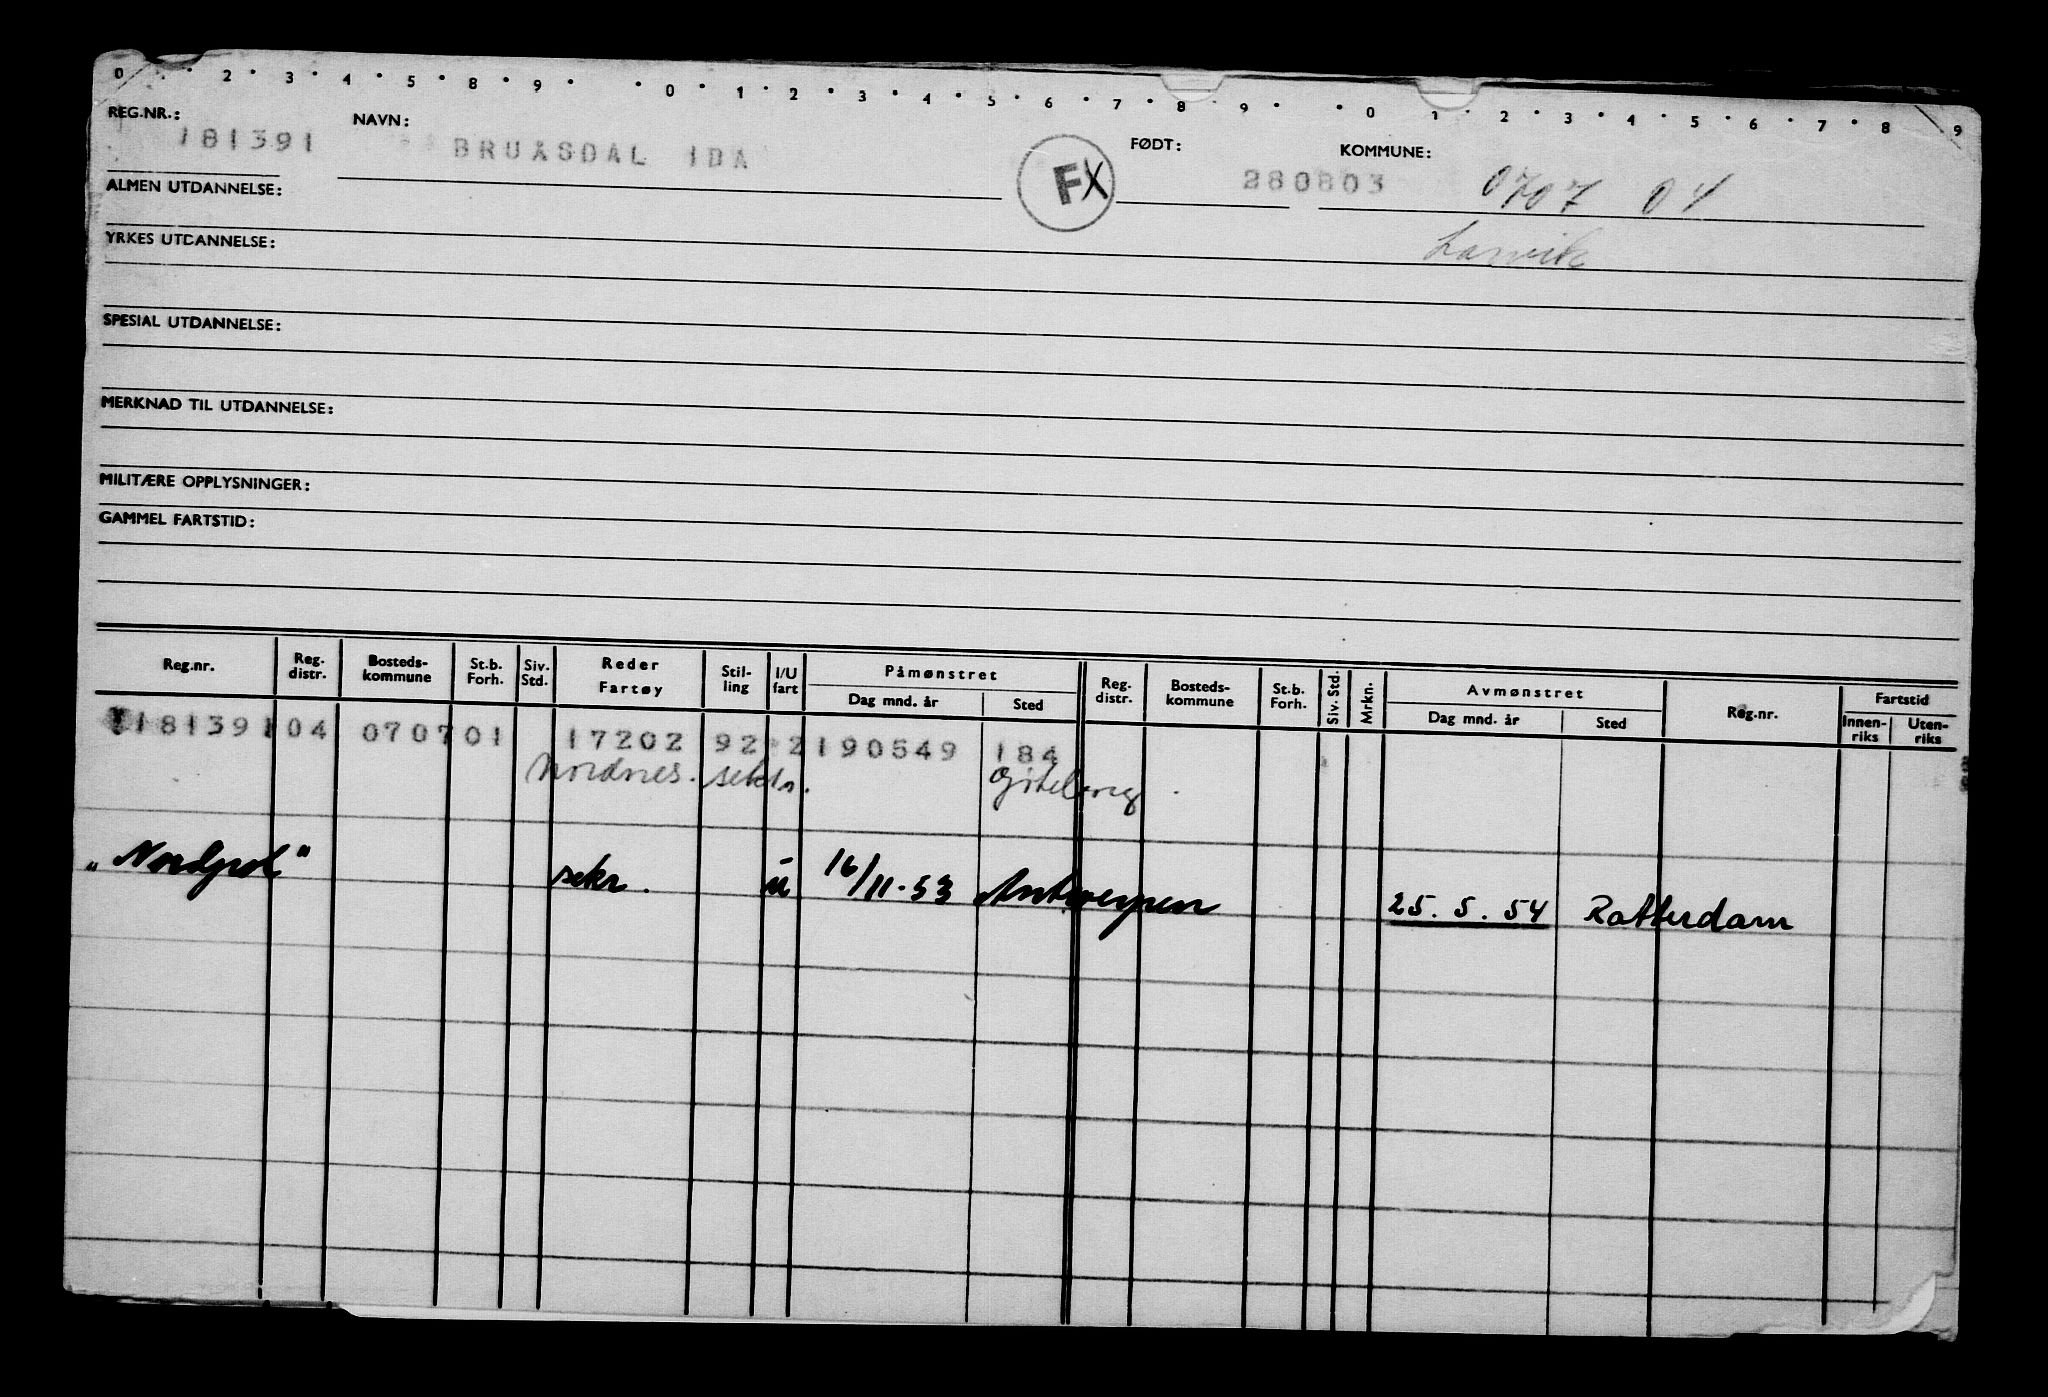 0 · 2 · 3 · 4 · 5 · 8 · 9 · · 0 · 1 · 2 · 3 · 4 · 5 · 6 · 7 · 8 · 9 · · 0 · 1 · 2 · 3 · 4 · 5 · 6 · 7 · 8 · 9
REG.NR.: 181391 NAVN: BRUASDAL IDA FX FØDT: 280803 KOMMUNE: 0707 04
ALMEN UTDANNELSE:
Larvik
YRKES UTDANNELSE:
SPESIAL UTDANNELSE:
MERKNAD TIL UTDANNELSE:
MILITÆRE OPPLYSNINGER:
GAMMEL FARTSTID:
Reg.nr. Reg. distr. Bosteds-kommune St.b. Forh. Siv. Std. Reder Fartøy Stil-ling I/U fart Påmønstret Dag mnd. år Sted Reg. distr. Bosteds-kommune St.b. Forh. Siv. Std. Mrkn. Avmønstret Dag mnd. år Sted Reg.nr. Fartstid Innen-riks Uten-riks
181391 04 0707 01 17202 92 2 190549 184
Nordnes. sekr. Gøteborg
"Nordpol" sekr. u 16/11-53 Antwerpen 25.5.54 Rotterdam